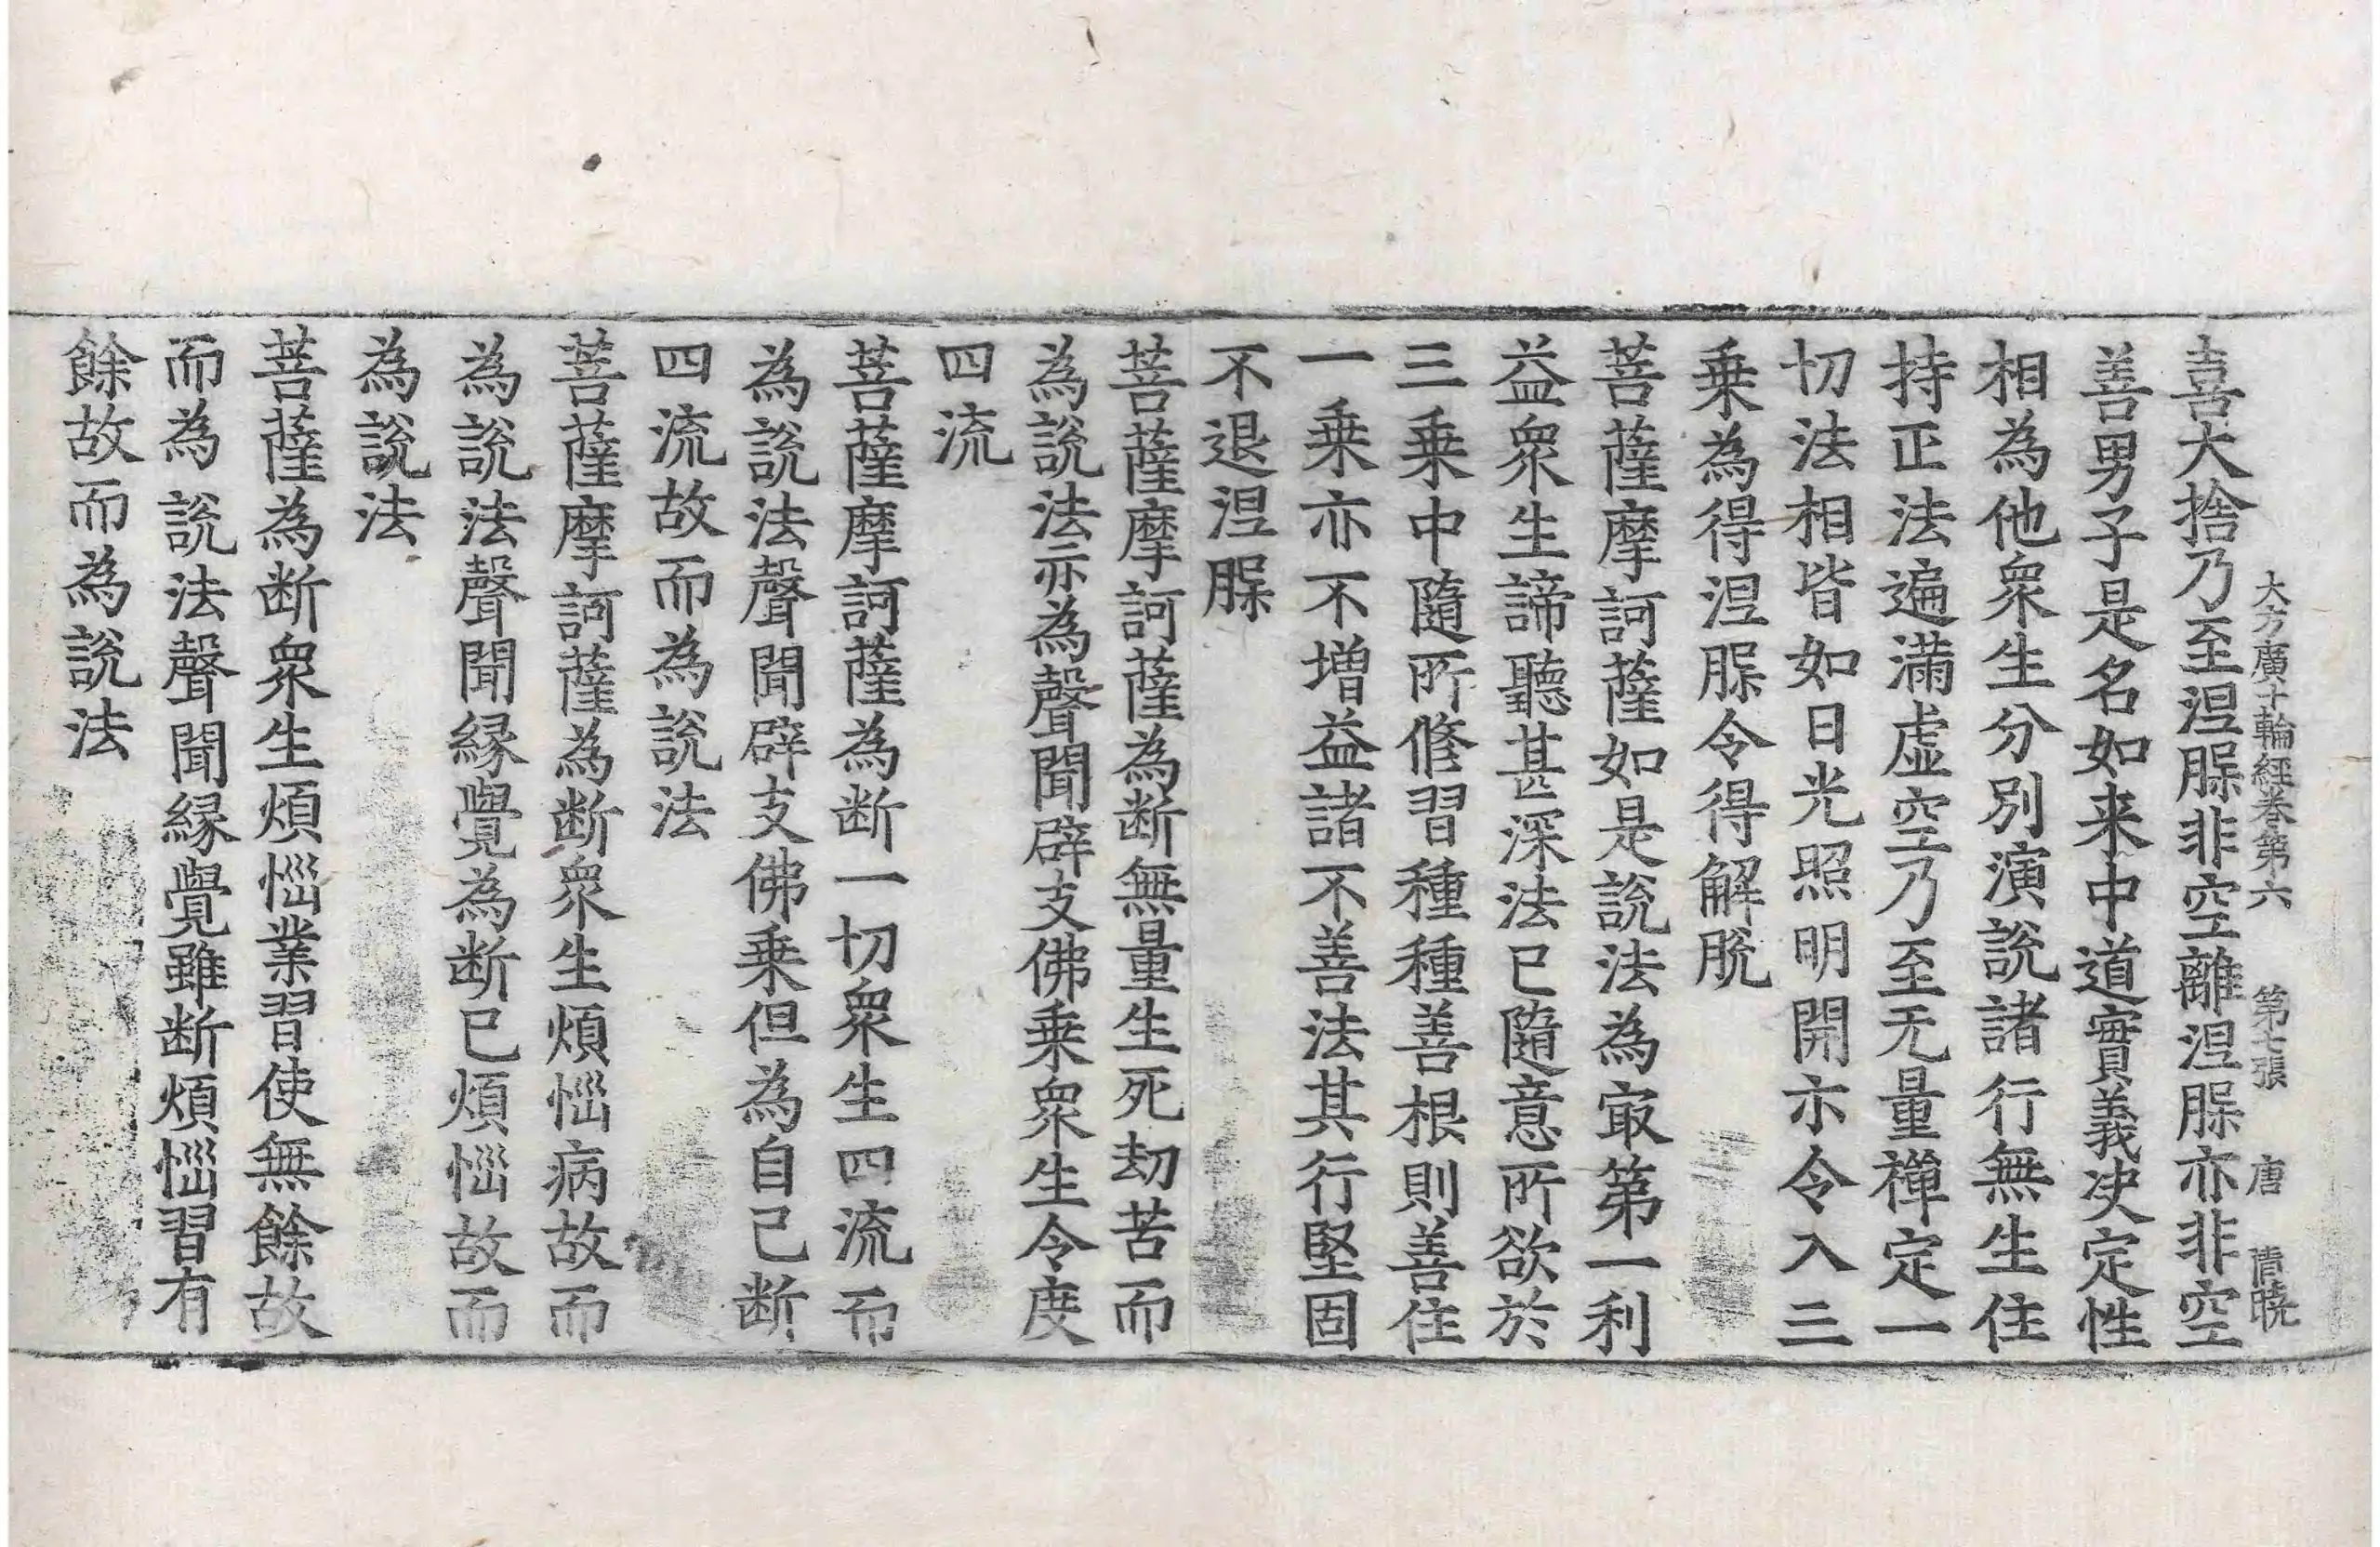 大方廣十輪經卷第六　第七張　唐　清曉
喜大捨乃至涅槃非空離涅槃亦非空
善男子是名如来中道實義决定性
相為他衆生分別演說諸行無生住
持正法遍滿虛空乃至无量禪定一
切法相皆如日光照明開亦令入三
乗為得涅槃令得解脫
菩薩摩訶薩如是說法為㝡第一利
益衆生諦聽甚深法已隨意所欲於
三乗中隨所修習種種善根則善住
一乗亦不增益諸不善法其行堅固
不退涅槃
菩薩摩訶薩為断無量生死劫苦而
為說法亦為聲聞辟支佛乗衆生令度
四流
菩薩摩訶薩為断一切衆生四流而
為說法聲聞辟支佛乗但為自己断
四流故而為說法
菩薩摩訶薩為断衆生煩惱病故而
為說法聲聞縁覺為断已煩惱故而
為說法
菩薩為断衆生煩惱業習使無餘故
而為說法聲聞縁覺雖断煩惱習有
餘故而為說法